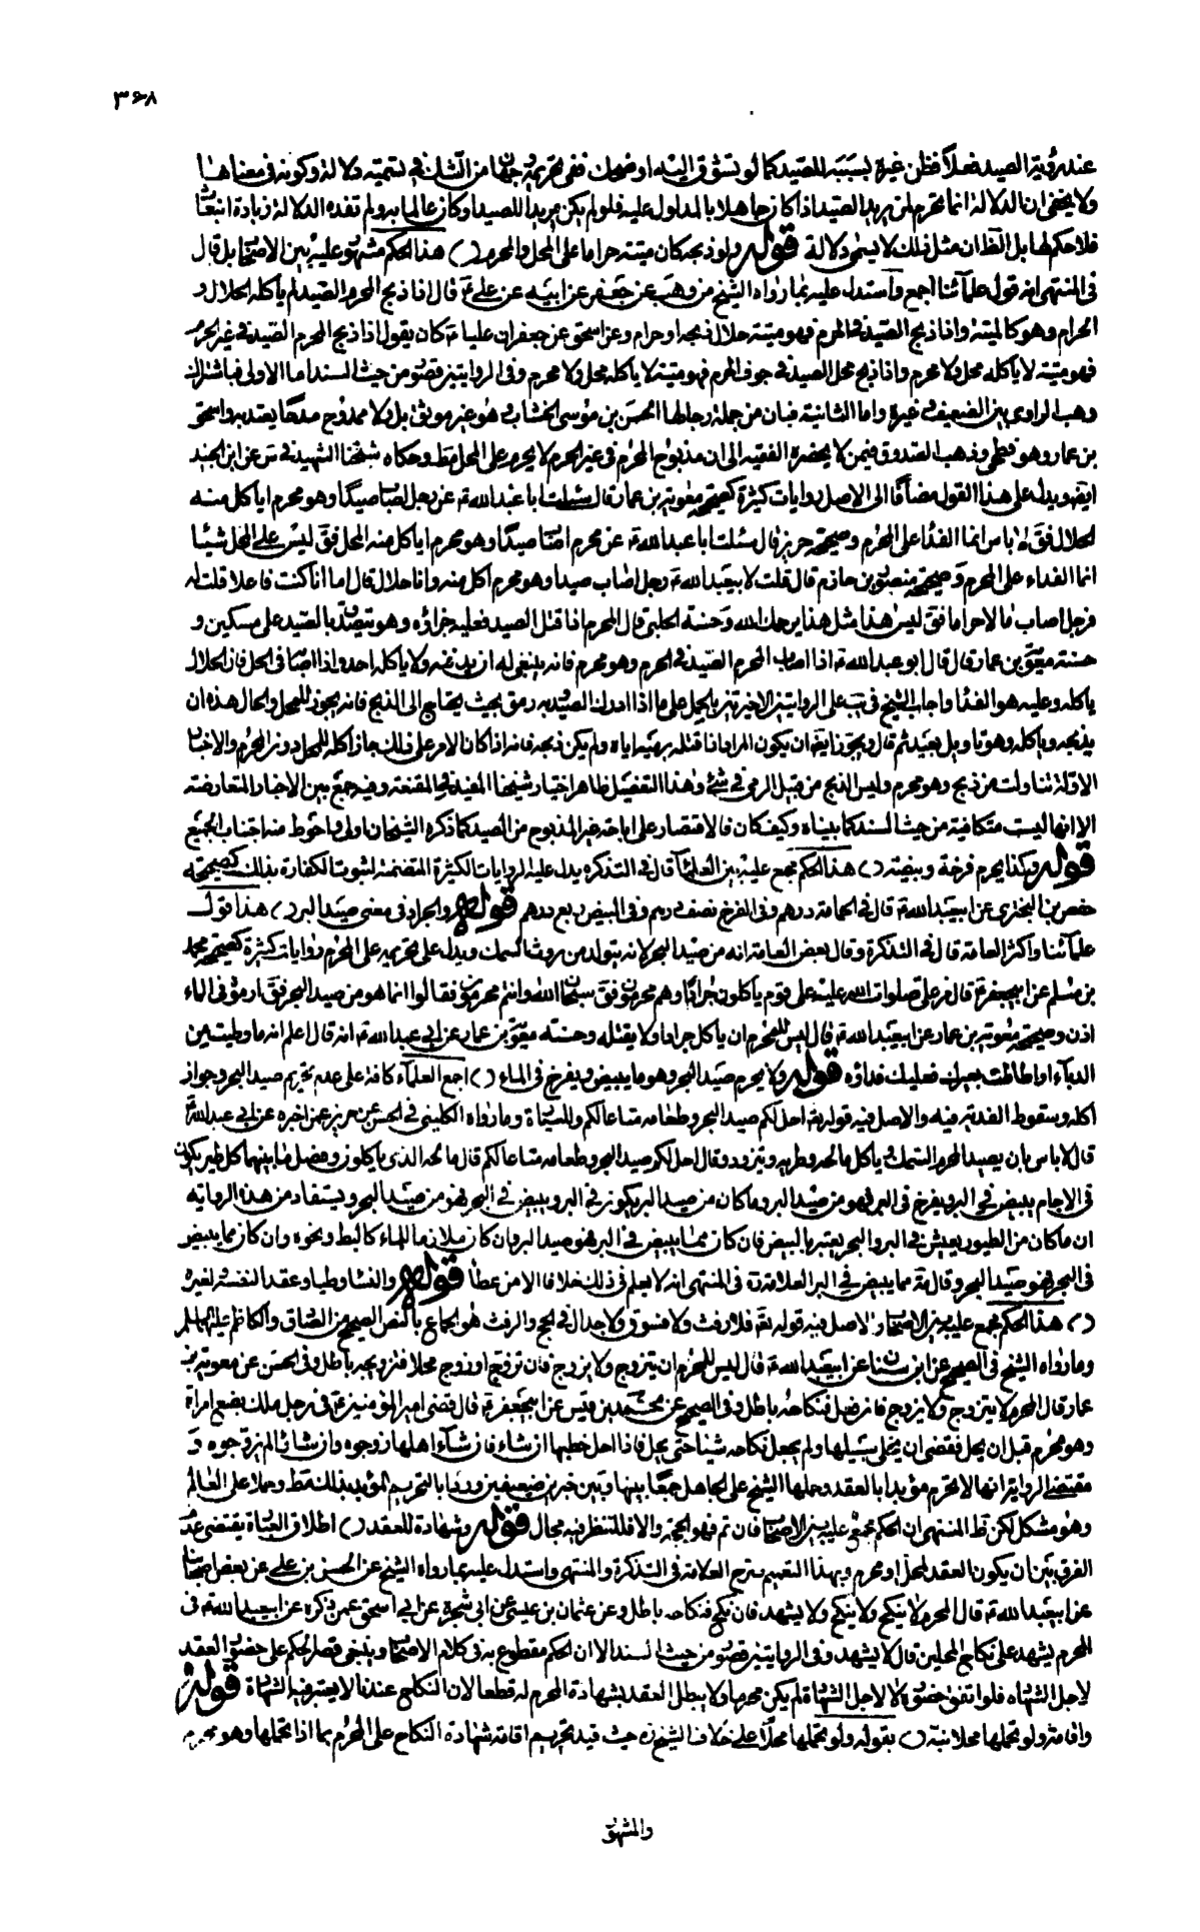 ۳۶۸
عند رؤية الصيد فعلاً فظن غيره بسببه للصيد كما لو تشوق اليه او ضحك ففى تحريمه وجهان من الشك فى تسميته دلالة وكونه فى معناها
ولا يخفى ان الدلالة انما تحرم لمن يريد الصيد اذا كان جاهلا بالمدلول عليه فلو لم يكن مريدا للصيد او كان عالما به ولم تفده الدلالة زيادة انبعاث
فلا حكم لها بل الظ ان مثل ذلك لا يسمى دلالة قوله ولو ذبحه كان ميتة حراما على المحل والمحرم () هذا الحكم مشهور عليه بين الاصحاب بل قال
فى المنتهى انه قول علمائنا اجمع واستدل عليه بما رواه الشيخ من وهب عن جعفر عن ابيه عن على ع قال اذا ذبح المحرم الصيد لم ياكله الحلال و
الحرام وهو كالميتة واذا ذبح الصيد فى الحرم فهو ميتة حلال ذبحه او حرام وعن اسحق عن جعفر ان عليا ع كان يقول اذا ذبح المحرم الصيد فى غير الحرم
فهو ميتة لا ياكله محل ولا محرم واذا ذبح محل الصيد فى جوف الحرم فهو ميتة لا ياكله محل ولا محرم وفى الروايتين قصور من حيث السند اما الاولى فباشتراك
وهب الراوى بين الضعيف وغيره واما الثانية فبان من جملة رجالها الحسن بن موسى الخشاب وهو غير موثق بل ولا ممدوح مدحا يعتد به واسحق
بن عمار وهو فطحى وذهب الصدوق فيمن لا يحضره الفقيه الى ان مذبوح المحرم فى غير الحرم لا يحرم على المحل مط وحكاه شيخنا الشهيد فى س عن ابن الجنيد
ايضا ويدل على هذا القول مضافا الى الاصل روايات كثيرة كصحيحة معوية بن عمار قال سئلت ابا عبد الله ع عن رجل اصاب صيدا وهو محرم اياكل منه
الحلال فق لا باس انما الفداء على المحرم وصحيحة حريز قال سئلت ابا عبد الله ع عن محرم اصاب صيدا وهو محرم ايأكل منه المحل فق ليس على المحل شيئا
انما الفداء على المحرم وصحيحة منصور بن حازم قال قلت لابيعبد الله ع رجل اصاب صيدا وهو محرم اكل منه وانا حلال قال اما انا كنت فاعلا قلت له
فرجل اصاب مالا حراما فق ليس هذا مثل هذا يرحمك الله وحسنة الحلبى قال المحرم اذا قتل الصيد فعليه جزاؤه وهو يتصدق بالصيد على مسكين و
حسنة معوية بن عمار قال قال ابو عبد الله ع اذا اصاب المحرم الصيد فى الحرم وهو محرم فانه ينبغى له ان يدفنه ولا ياكله احد واذا اصاب فى الحل فان الحلال
ياكله وعليه هو الفداء واجاب الشيخ فى يب على الروايتين الاخيرتين بالحمل على ما اذا ادرك الصيد به رمق بحيث يحتاج الى الذبح فانه يجوز للمحل والحال هذه ان
يذبحه وياكله وهو تاويل بعيد ثم قال ويجوز ايضا ان يكون المراد اذا قتله برميه اياه ولم يكن ذبحه فانه اذا كان الامر على ذلك جاز اكله للمحل دون المحرم والاخبار
الاولة تناولت من ذبح وهو محرم وليس الذبح من قبيل الرمى فى شئ وهذا التفصيل ظاهر اختيار شيخنا المفيد فى المقنعة وفيه جمع بين الاخبار المتعارضة
الا انها ليست متكافئة من حيث السند كما بيناه وكيف كان فالاقتصار على اباحة غير المذبوح من الصيد كما ذكره الشيخان اولى واحوط منه اجتناب الجميع
قوله وكذا يحرم فرخه وبيضه () هذا الحكم مجمع عليه بين العلماء قال فى التذكره يدل عليه الروايات الكثيرة المتضمنة لثبوت الكفارة بذلك كصحيحة
حفص بن البخترى عن ابيعبد الله ع قال فى الحمامة درهم وفى الفرخ نصف درهم وفى البيض ربع درهم قوله والجراد فى معنى صيد البر () هذا قول
علمائنا واكثر العامة قال فى التذكرة وقال بعض العامة انه من صيد البحر لانه يتولد من روث السمك ويدل على تحريمه على المحرم روايات كثيرة كصحيحة محمد
بن مسلم عن ابيجعفر ع قال مر على صلوات الله عليه على قوم ياكلون جرادا وهم محرمون فق سبحان الله وانتم محرمون فقالوا انما هو من صيد البحر فق ارموه فى الماء
اذن وصحيحة معوية بن عمار عن ابيعبد الله ع قال ليس للمحرم ان ياكل جرادا ولا يقتله وحسنة معوية بن عمار عن ابى عبد الله ع انه قال اعلم انه ما وطيت من
الدباء او اوطاته بعيرك فعليك فداؤه قوله ولا يحرم صيد البحر وهو ما يبيض ويفرخ فى الماء () اجمع العلماء كافة على عدم تحريم صيد البحر وجواز
اكله وسقوط الفدية فيه والاصل فيه قوله تع احل لكم صيد البحر وطعامه متاعا لكم وللسيارة وما رواه الكلينى فى الحسن عن حريز عمن اخبره عن ابى عبد الله ع
قال لا باس بان يصيد المحرم السمك ويأكل مالحه وطريه ويتزود وقال احل لكم صيد البحر وطعامه متاعا لكم قال مالحه الذى ياكلون وفصل ما بينهما كل طير يكون
فى الاجام يبيض فى البر ويفرخ فى البر فهو من صيد البر وما كان من صيد البر يكون فى البر ويبيض فى البحر فهو من صيد البحر ويستفاد من هذه الرواية
ان ما كان من الطيور يعيش فى البر والبحر يعتبر بالبيض فان كان مما يبيض فى البر فهو صيد البر وان كان ملازما للماء كالبط ونحوه وان كان مما يبيض
فى البحر فهو صيد البحر وقال ره مما يبيض فى البر العلامة ره فى المنتهى انه لا يعلم فى ذلك خلافا الا من عطا قوله والنساء وطيا وعقدا لنفسه لغيره
() هذا الحكم مجمع عليه بين الاصحاب والاصل فيه قوله تع فلا رفث ولا فسوق ولا جدال فى الحج والرفث هو الجماع بالنص الصحيح عن الصادق والكاظم عليهما السلم
وما رواه الشيخ فى الصحيح عن ابن سنان عن ابيعبد الله ع قال ليس للمحرم ان يتزوج ولا يزوج فان تزوج او زوج محلا فتزويجه باطل وفى الحسن عن معوية بن
عمار قال المحرم لا يتزوج ولا يزوج فان فعل فنكاحه باطل وفى الصحيح عن محمد بن قيس عن ابيجعفر ع قال قضى امير المؤمنين ع فى رجل ملك بضع امراة
وهو محرم قبل ان يحل فقضى ان يخلى سبيلها ولم يجعل نكاحه شيئا حتى يحل فاذا احل خطبها ان شاء فان شاء اهلها زوجوه وان شاؤا لم يزوجوه و
مقتضى الرواية انها لا تحرم مؤبدا بالعقد وحملها الشيخ على الجاهل جمعا بينها وبين خبرين ضعيفين وردا بالتحريم المؤبد بذلك مط وحملا على العالم
وهو مشكل لكن ظ المنتهى ان الحكم مجمع عليه بين الاصحاب فان تم فهو الحجة والا فللنظر فيه مجال قوله وشهادة للعقد () اطلاق العبارة يقتضى عدم
الفرق بين ان يكون العقد لمحل او محرم وبهذا التعميم صرح العلامة فى التذكرة والمنتهى واستدل عليه بما رواه الشيخ عن الحسن بن على عن بعض اصحابنا
عن ابيعبد الله ع قال المحرم لا ينكح ولا ينكح ولا يشهد فان نكح فنكاحه باطل وعن عثمان بن عيسى عن ابى شجرة عن ابى اسحق عمن ذكره عن ابيعبد الله ع فى
المحرم يشهد على نكاح المحلين قال لا يشهد وفى الروايتين قصور من حيث السند الا ان الحكم مقطوع به فى كلام الاصحاب وينبغى قصر الحكم على حضور العقد
لاجل الشهاده فلو اتفق حضوره لا لاجل الشهادة لم يكن محرما ولا يبطل العقد بشهادة المحرم له قطعا لان النكاح عندنا لا يعتبر فيه الشهادة قوله
واقامة ولو تحملها محلا نبه () بقوله ولو تحملها محلا على خلاف الشيخ ره حيث قيد تحريم اقامة شهادة النكاح على المحرم بما اذا تحملها وهو محرم
والمشهور